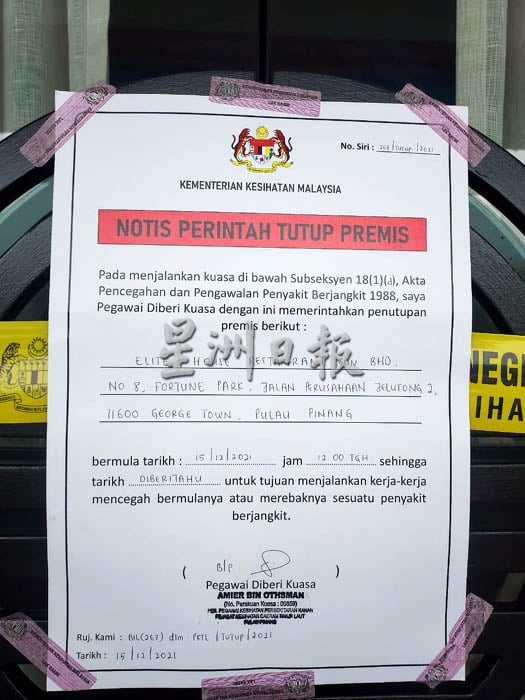 No. Siri : 268/TUTUP/2021
KEMENTERIAN KESIHATAN MALAYSIA
NOTIS PERINTAH TUTUP PREMIS
Pada menjalankan kuasa di bawah Subseksyen 18(1)(d), Akta
Pencegahan dan Pengawalan Penyakit Berjangkit 1988, saya
Pegawai Diberi Kuasa dengan ini memerintahkan penutupan
premis berikut :
星洲日報
ELITE HOUSE RESTAURANT BHD,
NO 8, FORTUNE PARK, JALAN PERUSAHAAN JELUTONG 2,
11600 GEORGE TOWN, PULAU PINANG
NEGE
IHA
bermula tarikh : 15/12/2021 jam 12.00 TGH sehingga
tarikh DIBERITAHU untuk tujuan menjalankan kerja-kerja
mencegah bermulanya atau merebaknya sesuatu penyakit
berjangkit.
( B/P : )
Pegawai Diberi Kuasa
AMIER BIN OTHSMAN
(No. Perakuan Kuasa : 00859)
PEN. PEGAWAI KESIHATAN PERSEKITARAN KANAN
PEJABAT KESIHATAN DAERAH TIMUR LAUT
PULAU PINANG
Ruj. Kami : BIL(267) dlm. PKTL /TUTUP/2021
Tarikh : 15/12/2021